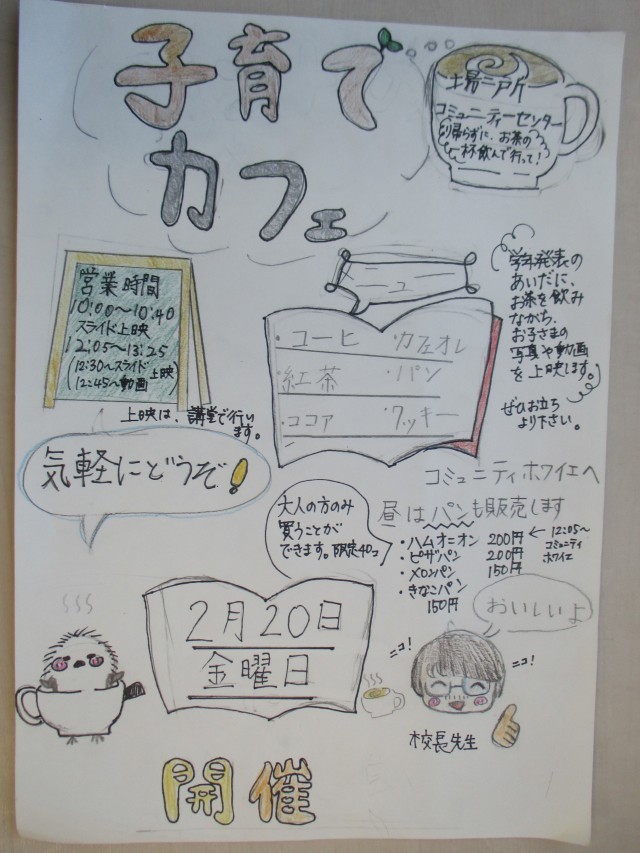 子育て
カフェ
場所
コミュニティーセンター
帰らずに、お茶の
杯飲んで行って！
営業時間
10:00～10:40
スライド上映
12:05～13:25
(12:30～スライド
12:45～動画 上映)
上映は、講堂で行い
ます。
メニュー
・コーヒー ・カフェオレ
・紅茶 ・パン
・ココア ・クッキー
学年発表の
あいだに、
お茶を飲み
ながら、
お子さまの
写真や動画
を上映します。
ぜひお立ち
より下さい。
気軽にどうぞ！
コミュニティホワイエへ
昼はパンも販売します
大人の方のみ
買うことが
できます。限定40コ
・ハムオニオン 200円 ← 12:05～
コミュニティ
ホワイエ
・ピザパン 200円
・メロンパン 150円
・きなこパン
150円
おいしいよ
2月20日
金曜日
ニコ！
ニコ！
校長先生
開催